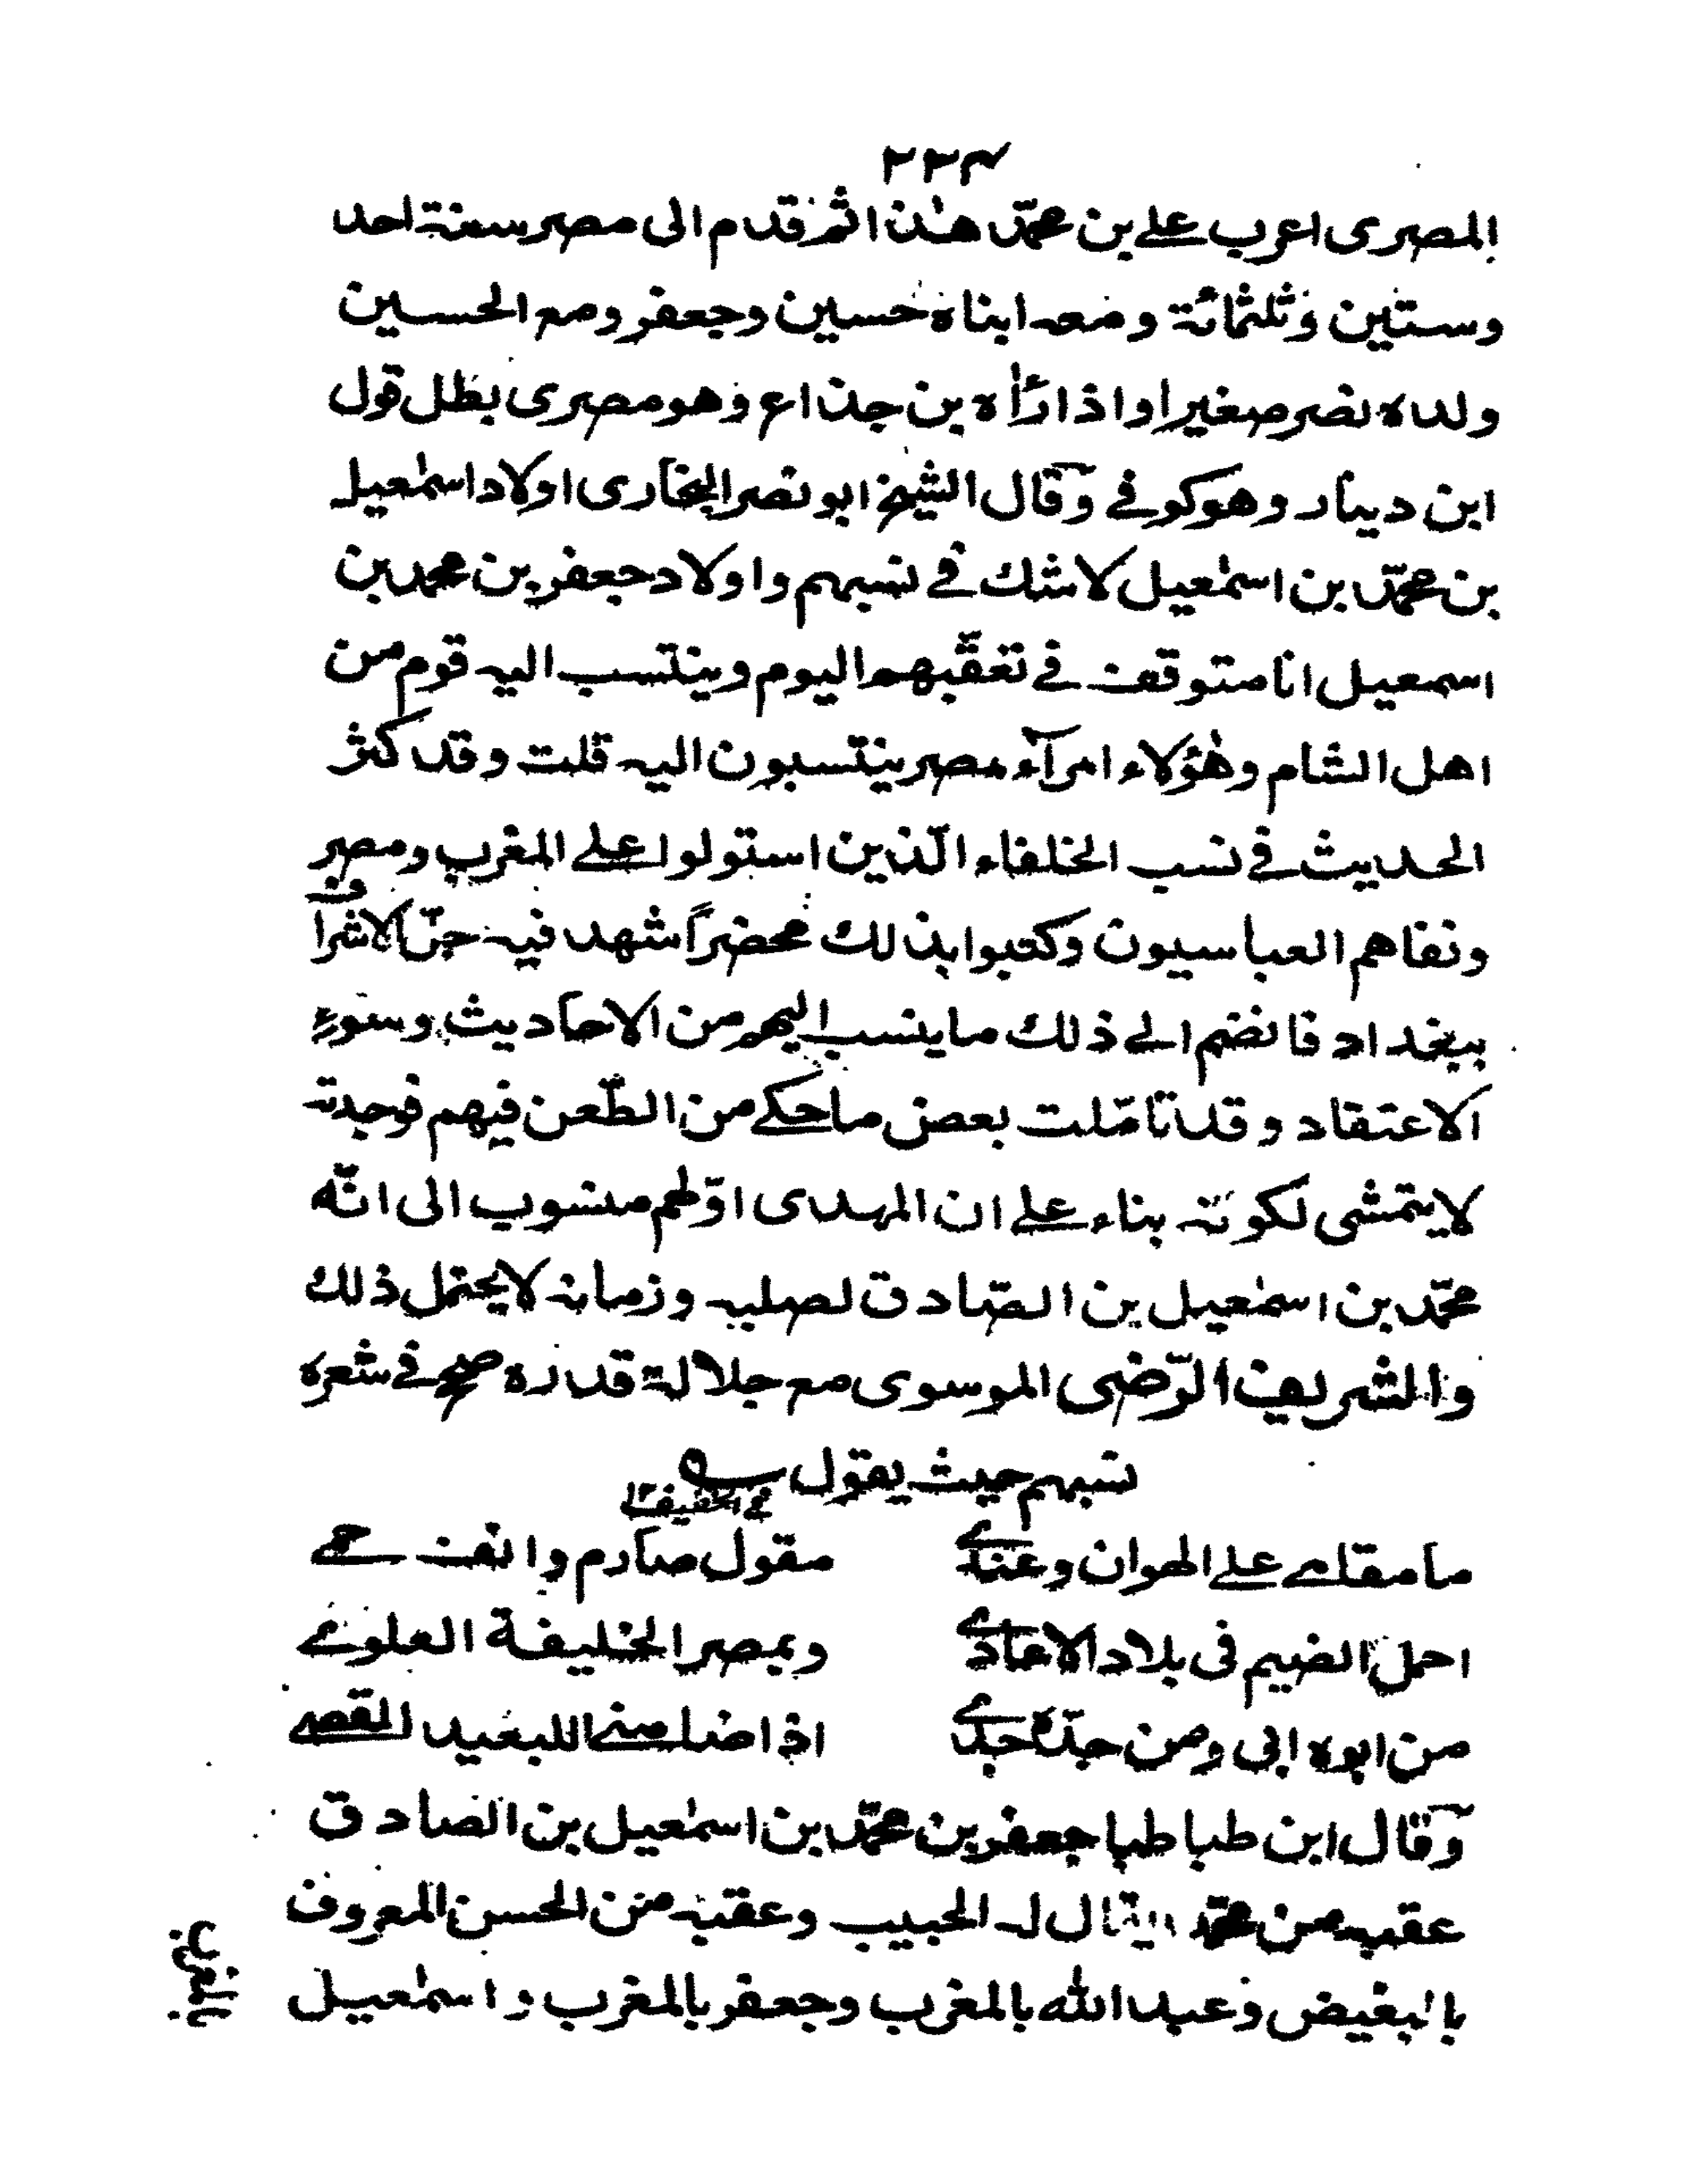 ٢٣٤
المصرى اعرب على بن محمّد هٰذا ثم قدم الى مصر سنة احد
وستين وثلثمائة ومعه ابناه حسين وجعفر ومع الحسين
ولداه نصر صغيرا واذا رٰأه بن جذاع وهو مصرى بطل قول
ابن دينار وهو كوفى وقال الشيخ ابو نصر البخارى اولاد اسمٰعيل
بن محمّد بن اسمٰعيل لا شك فى نسبهم واولاد جعفر بن محمد بن
اسمعيل انا متوقف فى تعقّبهم اليوم وينتسب اليه قوم من
اهل الشام وهٰؤلاء امرآء مصر ينتسبون اليه قلت وقد كثر
الحديث فى نسب الخلفاء الّذين استولوا على المغرب ومصر
ونفاهم العباسيون وكتبوا بذلك محضراً شهد فيه جلّ الاشراف
ببغداد فانضم الى ذلك ما ينسب اليهم من الاحاديث وسوء
الاعتقاد وقد تامّلت بعض ما حكى من الطّعن فيهم فوجدته
لا يتمشى لكونه بناء على ان المهدى اوّلهم منسوب الى انّه
محمّد بن اسمٰعيل بن الصّادق لصلبه وزمانه لا يحتمل ذلك
والشريف الرّضى الموسوى مع جلالة قدره صحح فى شعره
نسبهم حيث يقول
فى الخفيف
ما مقامى على الهوان وعندى مقول صارم وانف حمى
احمل الضيم فى بلاد الاعادى وبمصر الخليفة العلوى
من ابوه ابى ومن جدّه جدى اذا ضامنى البعيد القصى
وقال ابن طباطبا جعفر بن محمّد بن اسمٰعيل بن الصادق
عقبه من محمّد يقال له الحبيب وعقبه من الحسن المعروف
بالبغيض وعبد الله بالمغرب وجعفر بالمغرب واسمٰعيل